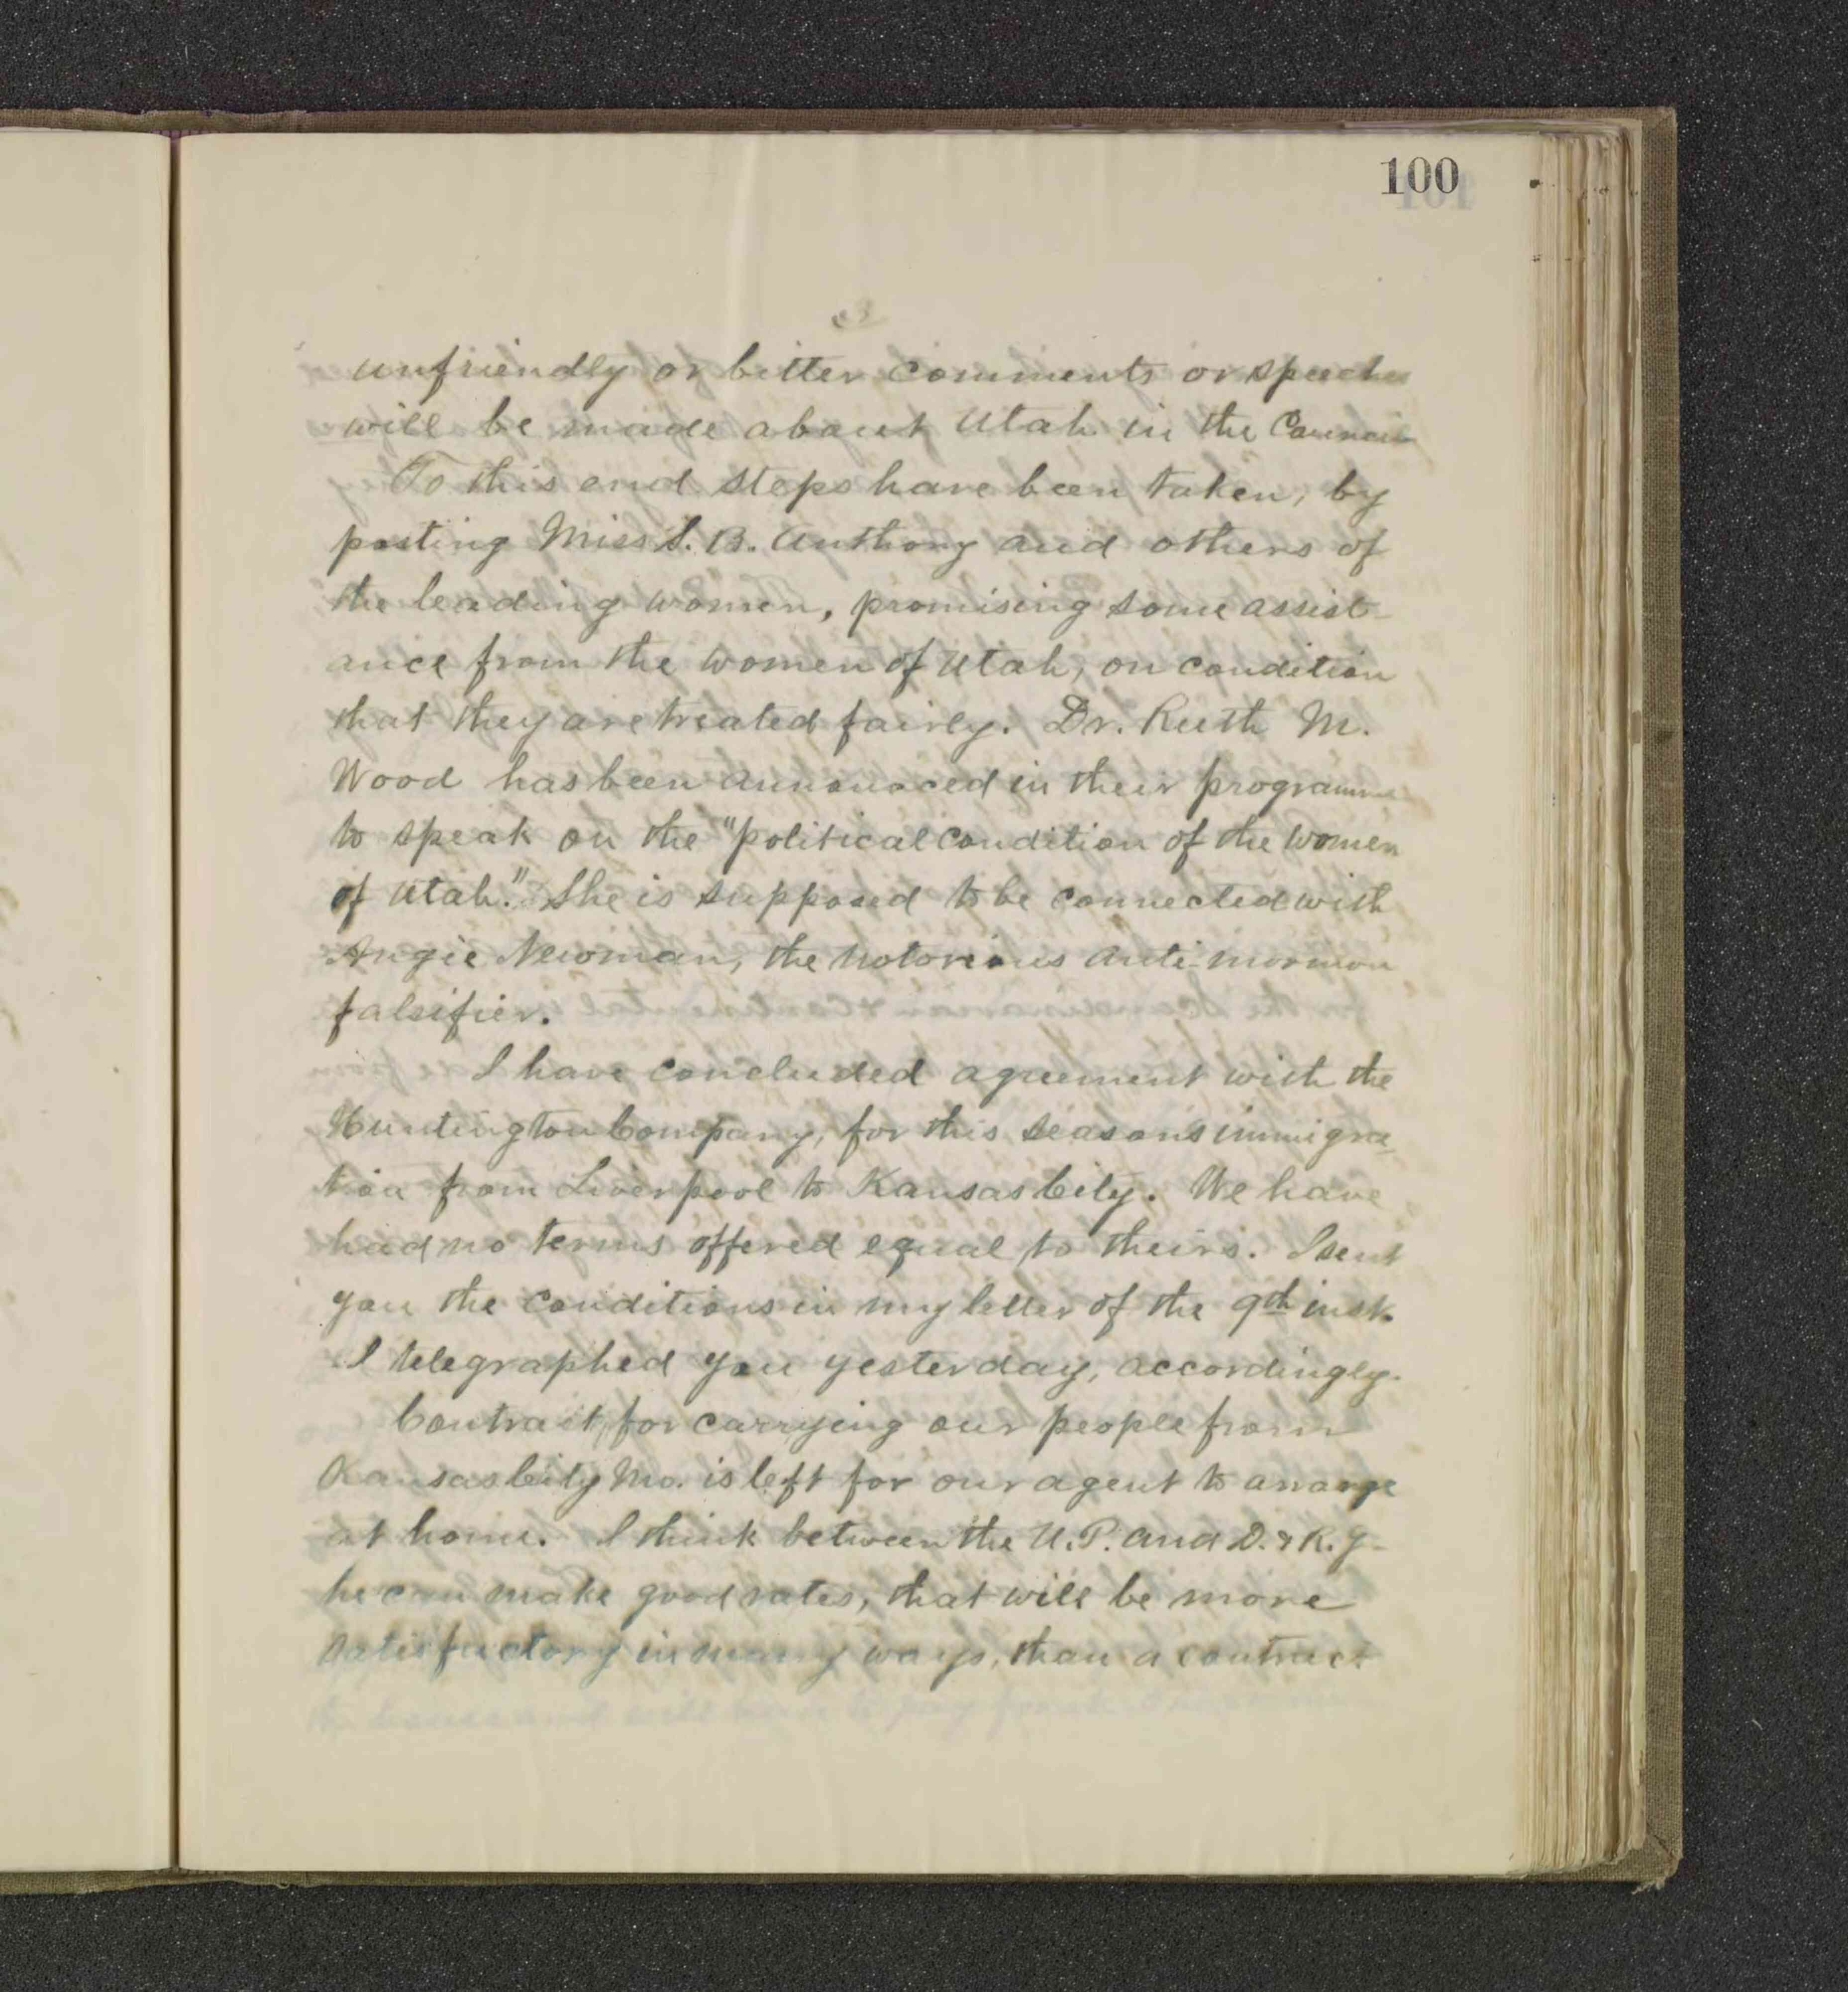 100
3
unfriendly or bitter comments or speeches
will be made about Utah in the Council
To this end steps have been taken, by
posting Miss S. B. Anthony and others of
the leading women, promising some assist-
ance from the women of Utah, on condition
that they are treated fairly. Dr. Ruth M.
Wood has been announced in their programme
to speak on the "political condition of the women
of Utah." She is supposed to be connected with
Angie Newman, the notorious anti-mormon
falsifier.
I have concluded agreement with the
Huntington Company, for this seasons immigra-
tion from Liverpool to Kansas City. We have
had no terms offered equal to theirs. I sent
you the conditions in my letter of the 9th inst.
I telegraphed you yesterday, accordingly.
Contract, for carrying our people from
Kansas City Mo. is left for our agent to arrange
at home. I think between the U.P. and D. & R. G.
he can make good rates, that will be more
satisfactory in many ways, than a contract